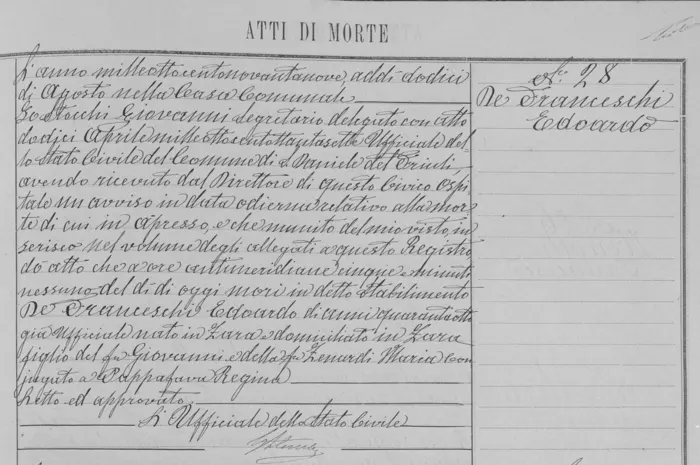 ATTI DI MORTE
L'anno milleottocentonovantanove, addì dodici
di Agosto nella Casa Comunale
Io Stocchi Giovanni Segretario delegato con atto
dodici Aprile milleottocentottantasette Uffiziale del
lo Stato Civile del Comune di S. Daniele del Friuli,
avendo ricevuto dal Direttore di questo Civico Ospi
tale un avviso in data odierna relativo alla mor
te di cui in apresso, e che munito del mio visto, in
serisco nel volume degli allegati a questo Registro
dò atto che a ore antimeridiane cinque e minuti
nessuno del dì di oggi morì in detto stabilimento
De Franceschi Edoardo di anni quarantaotto
già Uffiziale nato in Zara e domiciliato in Zara
figlio del fu Giovanni e della fu Zenardi Maria con
jugato a Pappafava Regina
Letto ed approvato.
L'Uffiziale dello Stato Civile
No. 28
De Franceschi
Edoardo